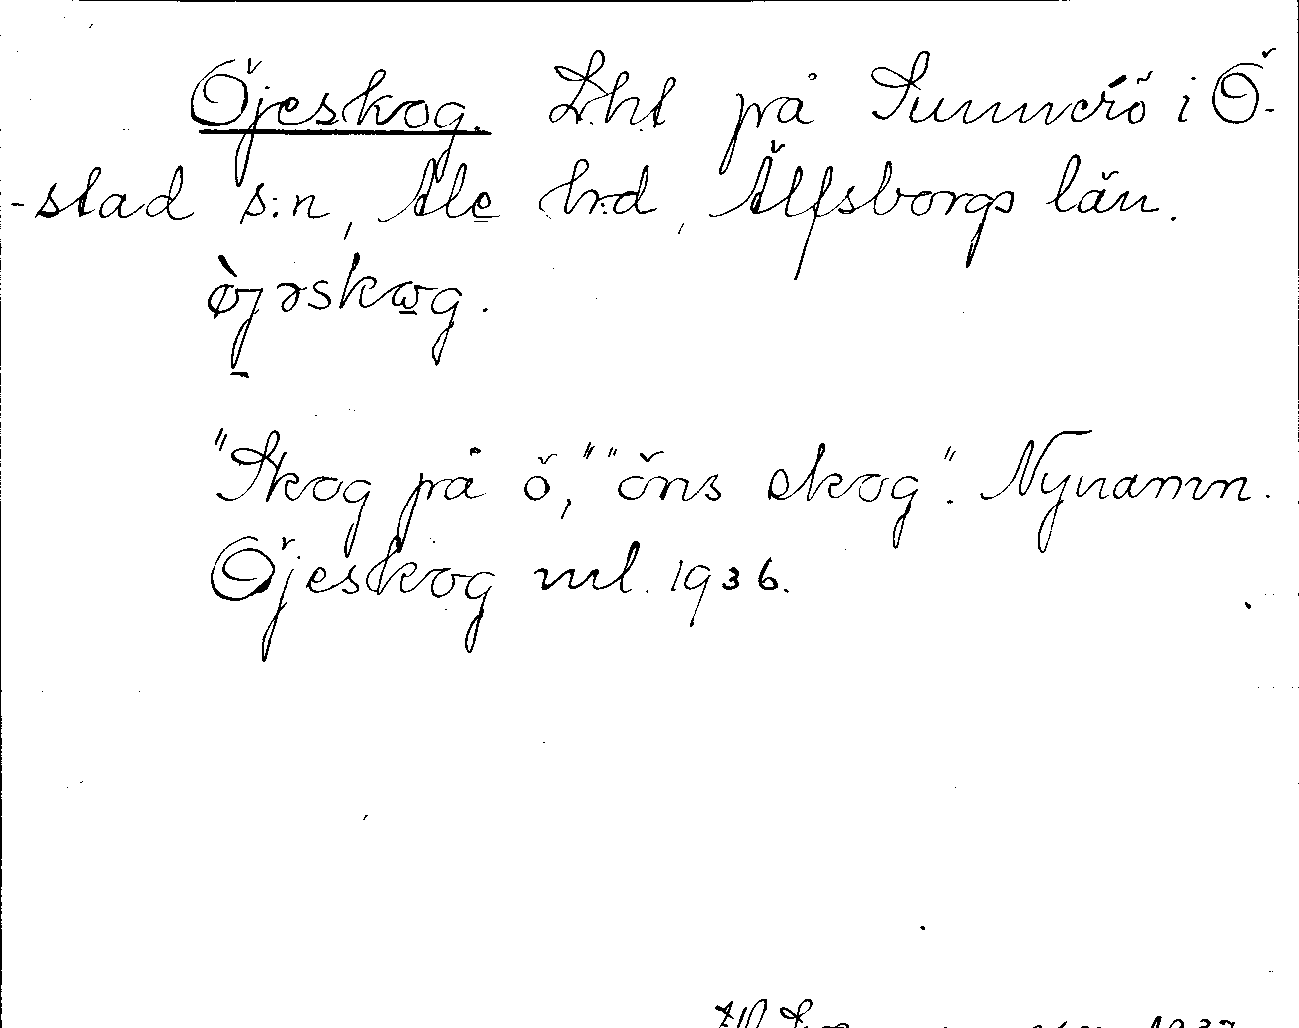 Öjeskog. Lht på Sunnerö i Ö-
-stad s:n, Ale hrd, Älfsborgs län.
ö̀jəskωg.
"Skog på ö," "öns skog". Nynamn.
Öjeskog ml. 1936.
1937